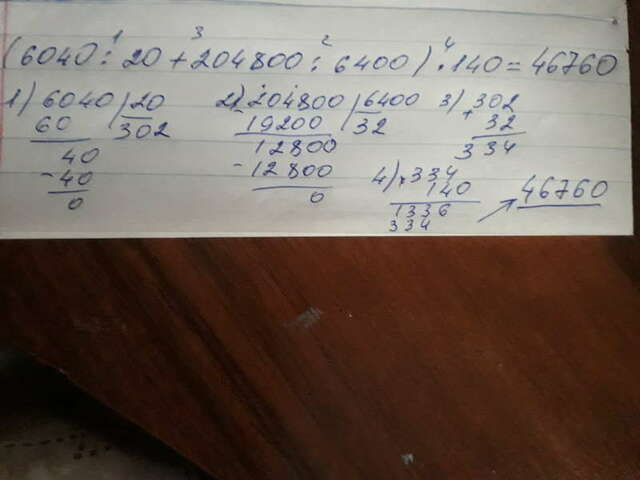 1 3 2 4
(6040 : 20 + 204800 : 6400) · 140 = 46760
1) 6040 | 20
60 | 302
40
- 40
0
2) - 204800 | 6400
19200 | 32
12800
- 12800
0
3) 302
+ 32
334
4) × 334
140
1336
334
46760